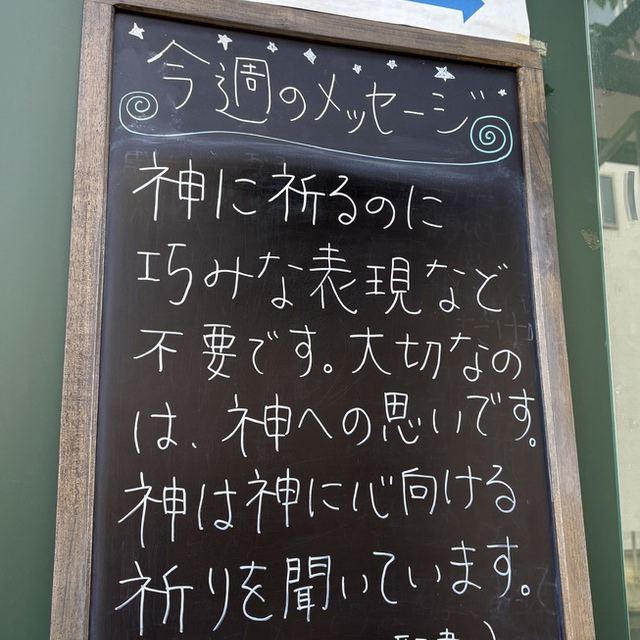 今週のメッセージ
神に祈るのに
巧みな表現など
不要です。大切なの
は、神への思いです。
神は神に心向ける
祈りを聞いています。